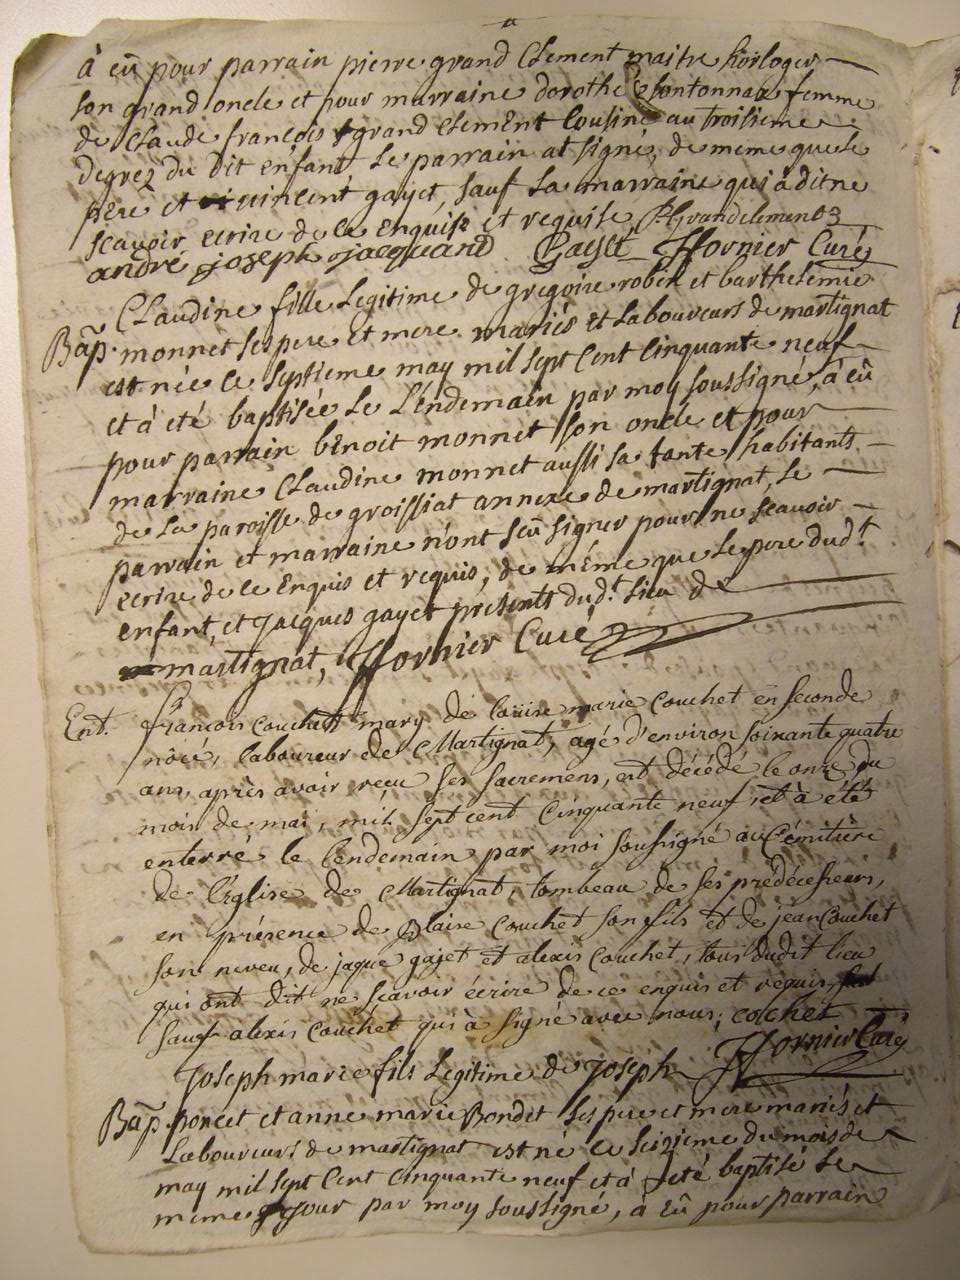 à eû pour parrain pierre grand Clement maitre horloger
son grand oncle et pour marraine dorothé femme
de Claude françois grand Clement Cousine au troisieme
degrez du dit enfant Le parrain at signé, de meme que le
pere et vincent gayet, sauf La marraine qui à dit ne
scavoir ecrire de ce Enquise et requise,
andré joseph jacquand Gayet FFornier Curé
Claudine fille Legitime de gregoire robin et barthelemie
Bap. monnet ses pere Et mere mariés et Laboureurs de martignat
est née le septieme may mil sept Cent Cinquante neuf
et à eté baptisée Le L'endemain par moy soussigné, à eû
pour parrain benoit monnet son oncle et pour
marraine Claudine monnet aussi sa tante habitants
de La paroisse de groissiat annexe de martignat, Le
parrain et marraine n'ont sçû signer pour ne scavoir
ecrire de ce Enquis et requis, de même que Le pere dud.t
enfant, et Jacques gayet presents dud.t Lieu de
martignat, FFornier Curé
Ent. françois couchet mary de Louise marie Couchet en seconde
nôce, laboureur de Martignat, agé d'environ soixante quatre
ans, après avoir reçu ses sacremens, est décédé le onze du
mois de mai, mil sept cent cinquante neuf, et à été
enterré le lendemain par moi soussigné au Cémitière
de l'Eglise de Martignat, tombeau de ses prédécesseurs,
en présence de Blaise Couchet son fils et de jean Couchet
son neveu, de jaque gajet et alexis Couchet, tous dudit lieu
qui ont dit ne scavoir écrire de ce enquis et requis,
sauf alexis Couchet qui à signé avec nous; cochet
FFornier Curé
Joseph marie fils Legitime de Joseph
Bap. poncet et anne marie Bondet ses pere et mere mariés et
Laboureurs de martignat est né le seizieme du mois de
may mil sept Cent Cinquante neuf et à eté baptisé Le
meme jour par moy soussigné, à Eû pour parrain